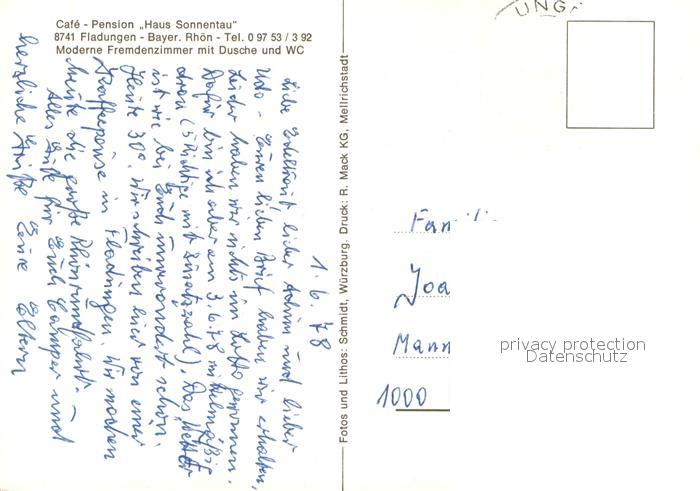 Café - Pension „Haus Sonnentau"
8741 Fladungen - Bayer. Rhön - Tel. 0 97 53 / 3 92
Moderne Fremdenzimmer mit Dusche und WC
1. 6. 78
Liebe Edeltraut lieber Achim und lieber
Udo - Euren lieben Brief haben wir erhalten,
leider haben wir nichts im Lotto gewonnen.
Dafür bin ich aber am 3.6.78
dran (5 Richtige mit Zusatzzahl). Das Wetter
ist wie bei Euch unverändert schön.
Heute 30°. Wir schreiben hier von einer
Kaffeepause in Fladungen. Wir machen
heute die große Rhönrundfahrt.
Alles Gute für Euch Camper und
herzliche Grüße Eure Eltern
Fotos und Lithos: Schmidt, Würzburg. Druck: R. Mack KG, Mellrichstadt
UNG
Fam
Joa
Mann
1000
privacy protection
Datenschutz